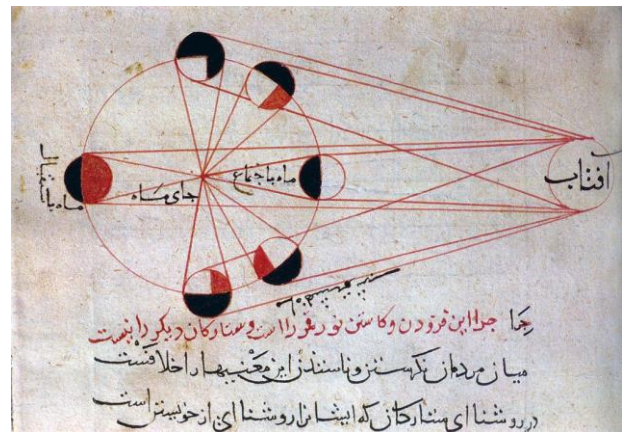 افتاب
ماه باجتماع
جای ماه
ماه باستقبال
ماه
چرا این فزودن و کاستن نور قمر را است و ستارکان دیکر را نیست
میان مردمان این معنیها را خلافست
در روشنا ای ستارکان که ایشانرا روشنا ای از خویشتن است